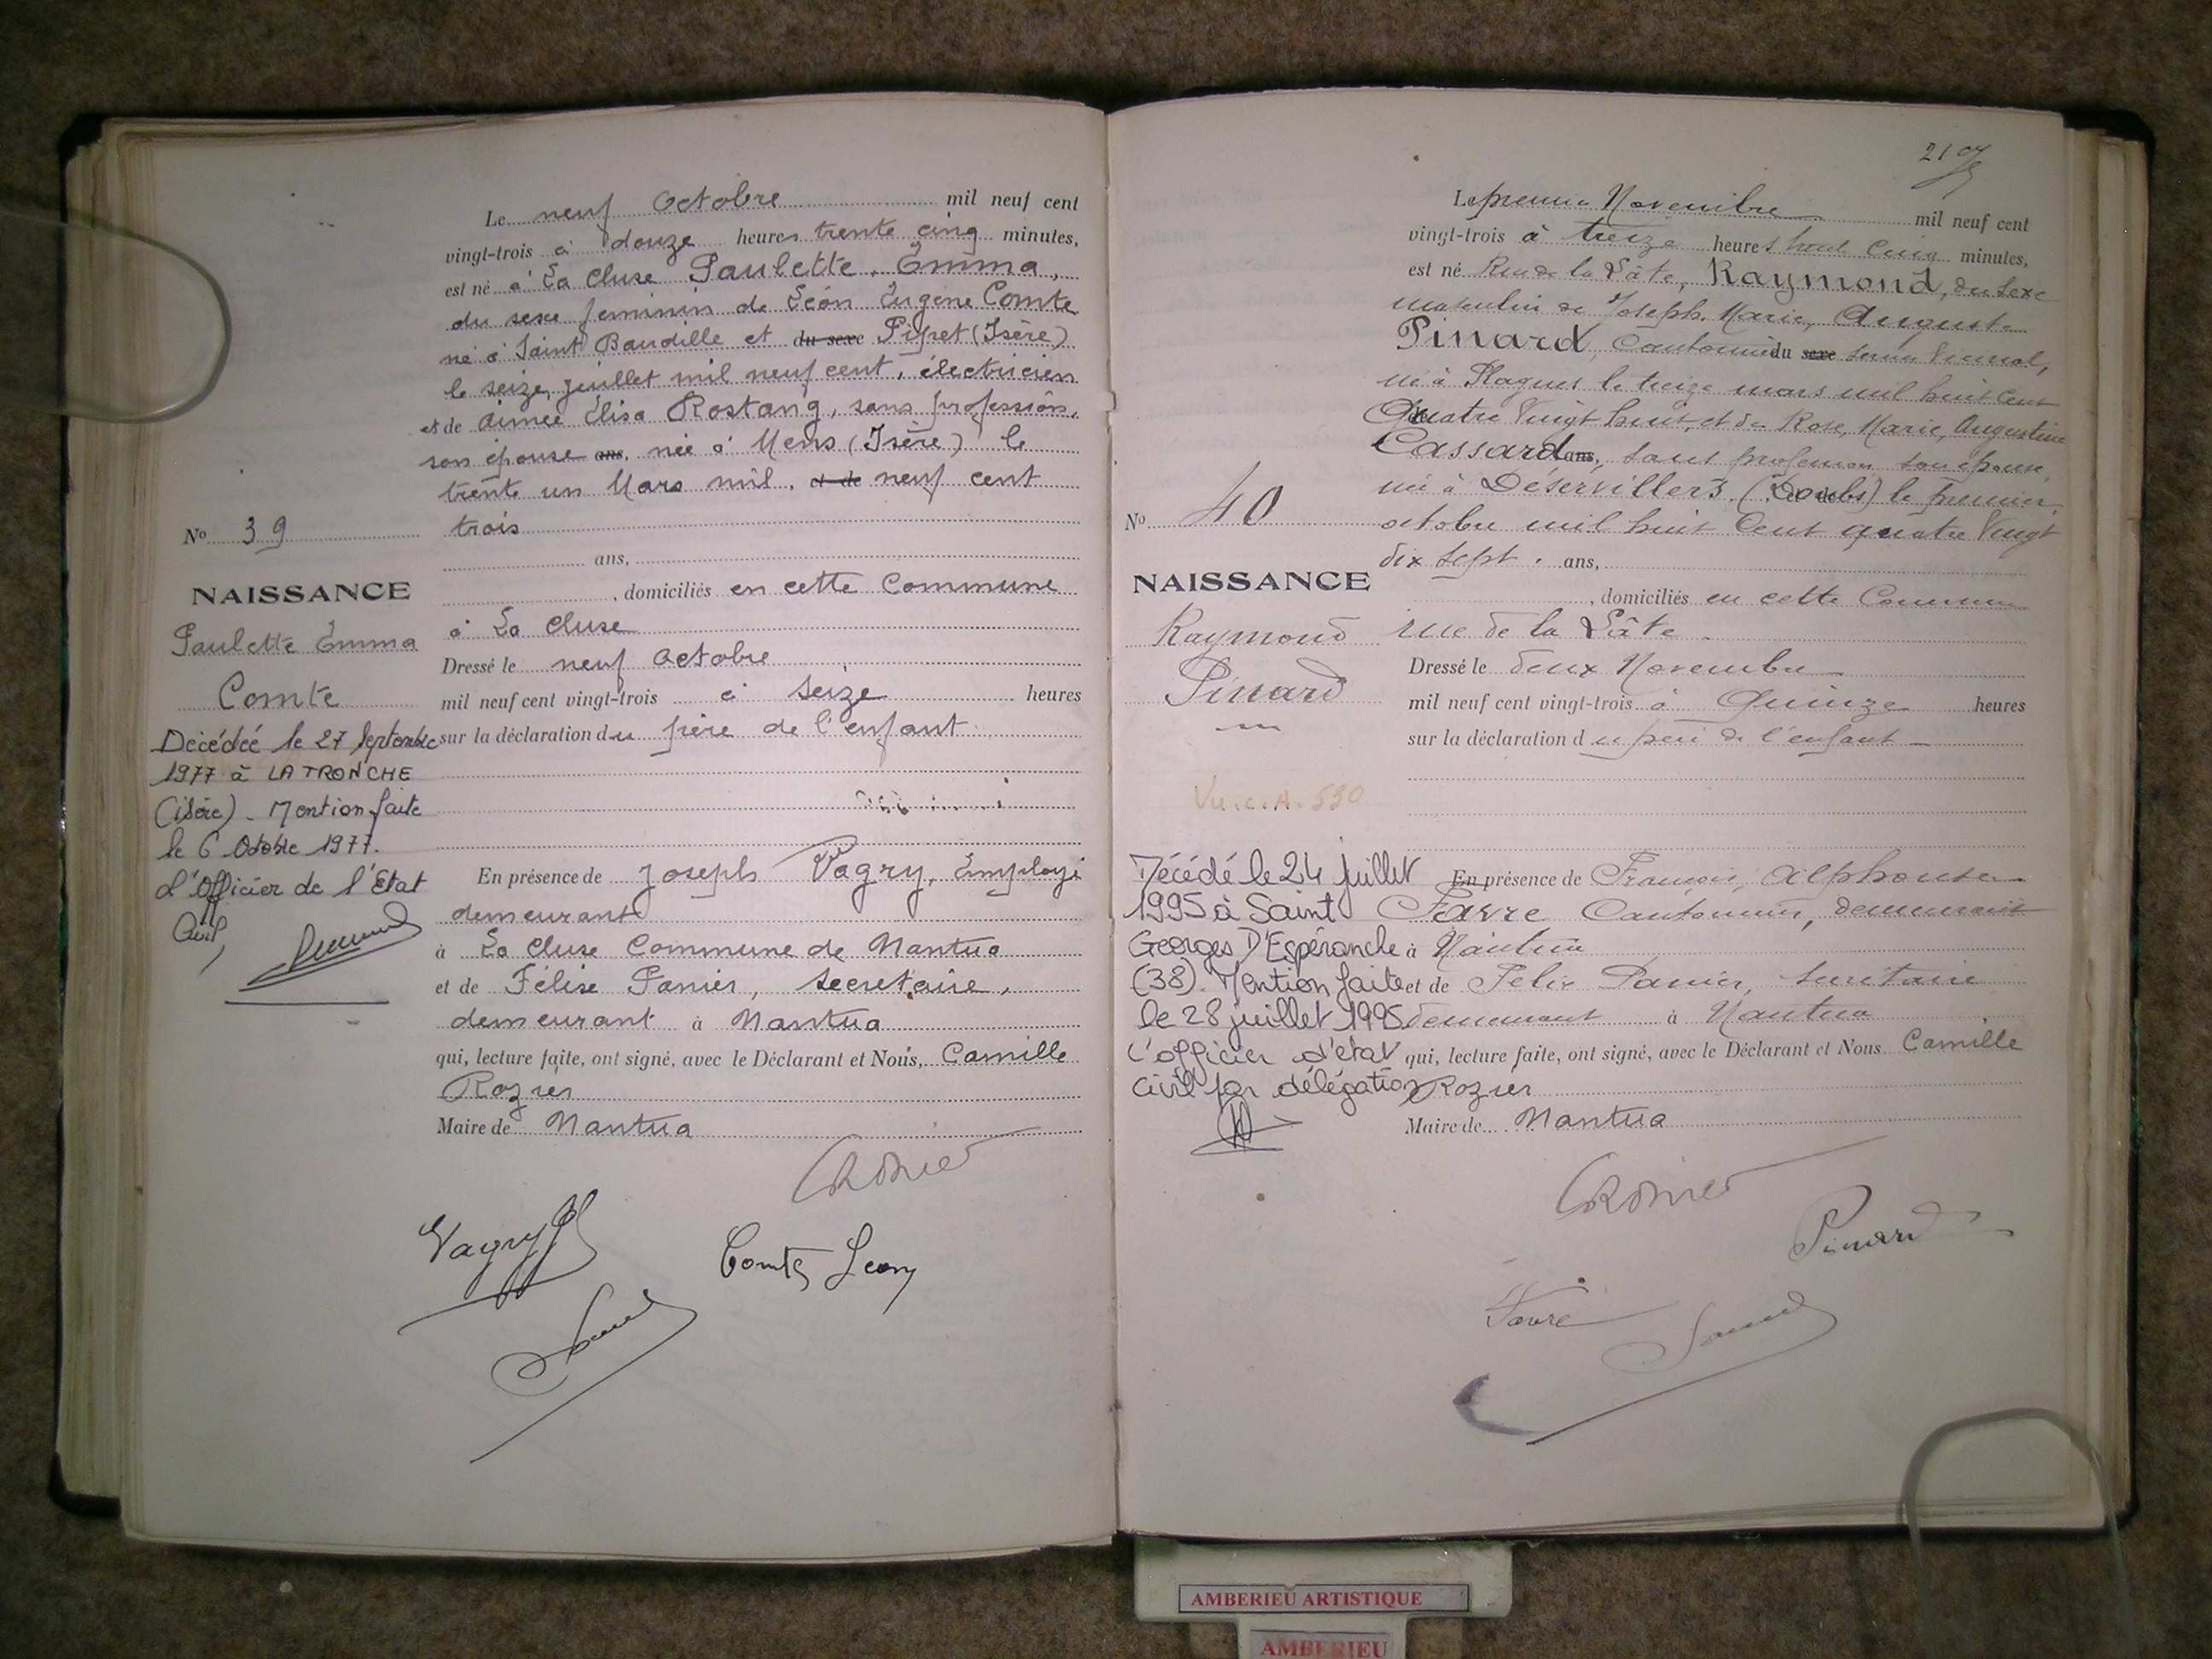 Le neuf Octobre mil neuf cent
vingt-trois à douze heures trente cinq minutes,
est né à La Cluse Paulette, Emma,
du sexe feminin de Léon Eugène Comte
né à Saint Baudille et du sexe Pipet (Isère)
le seize juillet mil neuf cent, électricien
et de Aimée Elisa Rostang, sans profession,
son épouse ans, née à Mens (Isère) le
trente un Mars mil. et de neuf cent
trois
ans,
, domiciliés en cette Commune
à La Cluse
Dressé le neuf Octobre
mil neuf cent vingt-trois à seize heures
sur la déclaration du père de l'enfant
En présence de Joseph Vagry, Employé
demeurant
à La Cluse Commune de Nantua
et de Félise Panier, secretaire,
demeurant à Nantua
qui, lecture faite, ont signé, avec le Déclarant et Nous, Camille
Rozier
Maire de Nantua
CRozier
Vagry
Comte Leon
No 39
NAISSANCE
Paulette Emma
Comte
Décédée le 27 Septembre
1977 à LA TRONCHE
(isère) - Mention faite
le 6 Octobre 1977.
L'Officier de l'Etat
Civil,
219
Le premier Novembre mil neuf cent
vingt-trois à treize heures trente Cinq minutes,
est né Rue de la Pâte, Raymond, du sexe
masculin de Joseph, Marie, Auguste
Pinard, Cantonnier du sexe service vicinal,
né à Plagnes le treize mars mil huit cent
Quatre Vingt huit, et de Rose, Marie, Augustine
Cassard ans, sans profession son épouse,
née à Déservillers (Doubs) le premier
octobre mil huit Cent quatre Vingt
dix sept. ans,
, domiciliés en cette Commune
rue de la Pâte
Dressé le deux Novembre
mil neuf cent vingt-trois à Quinze heures
sur la déclaration du père de l'enfant
En présence de François, Alphonse
Favre Cantonnier, demeurant
à Nantua
et de Felix Panier, secrétaire
demeurant à Nantua
qui, lecture faite, ont signé, avec le Déclarant et Nous Camille
Rozier
Maire de Nantua
CRozier
Pinard
Favre
No 40
NAISSANCE
Raymond
Pinard
Décédé le 24 juillet
1995 à Saint
Georges D'Espéranche
(38). Mention faite
le 28 juillet 1995
L'officier d'état
civil par délégation
AMBERIEU ARTISTIQUE
AMBERIEU